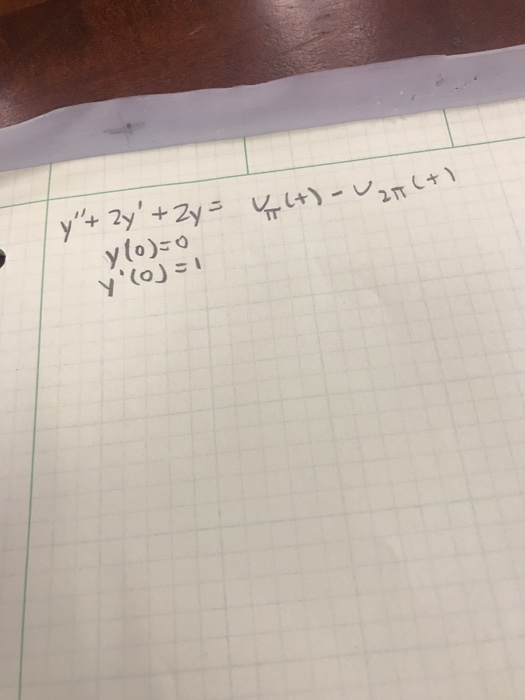 y'' + 2y' + 2y = u_π(t) - u_2π(t)
y(0)=0
y'(0)=1